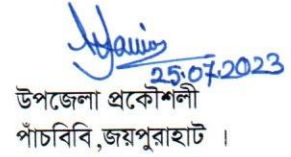 25.07.2023
উপজেলা প্রকৌশলী
পাঁচবিবি,জয়পুরাহাট ।